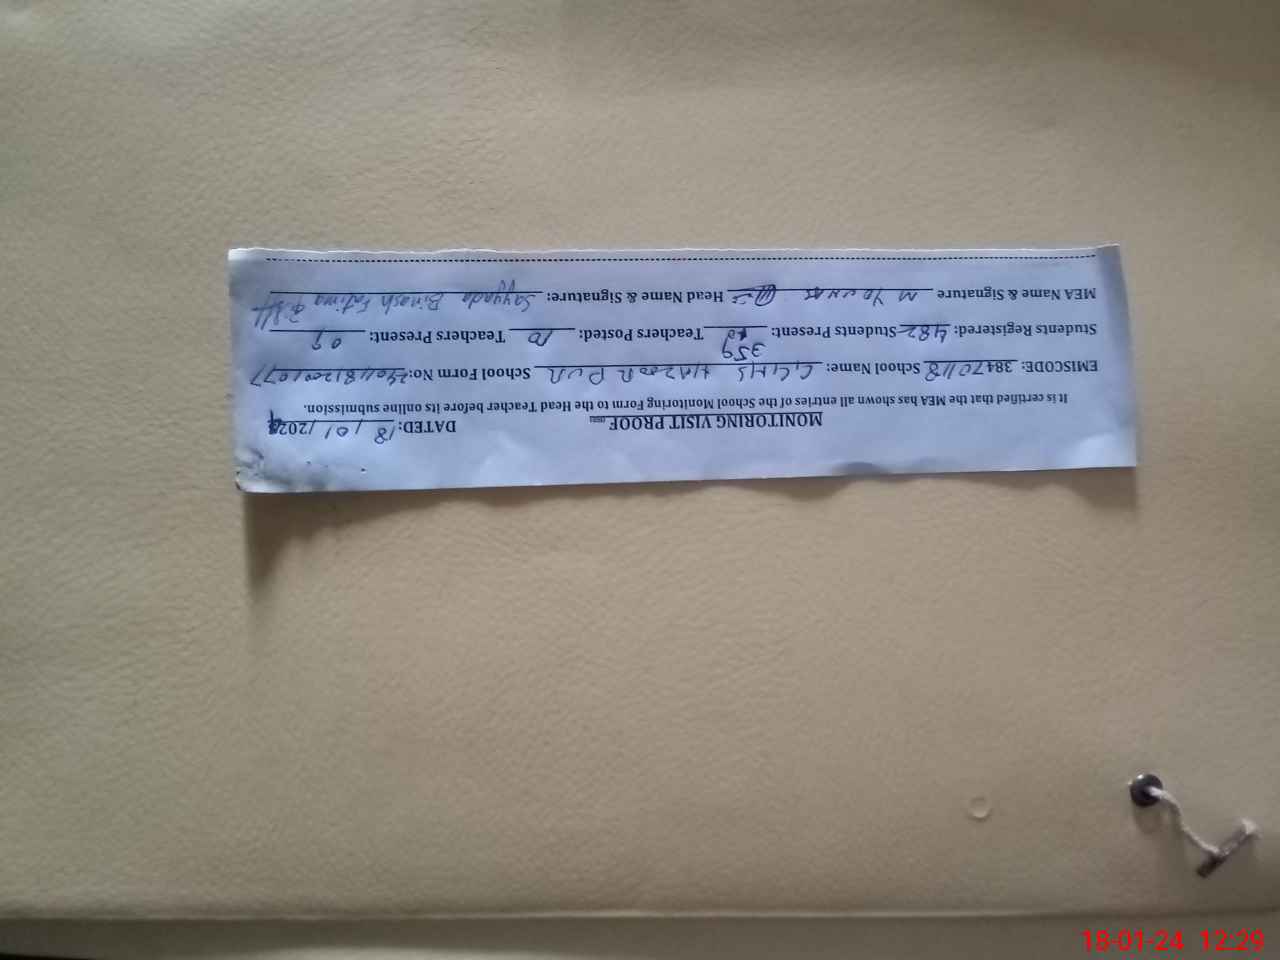 MONITORING VISIT PROOF DATED: 18 / 01 /2024
It is certified that the MEA has shown all entries of the School Monitoring Form to the Head Teacher before its online submission.
EMISCODE: 38470118 School Name: GGHS HAZOOR PUR School Form No:
Students Registered: 482 Students Present: 359 Teachers Posted: 10 Teachers Present: 09
MEA Name & Signature M YOUNAS Head Name & Signature: Sayyada Binash Fatima
18-01-24 12:29